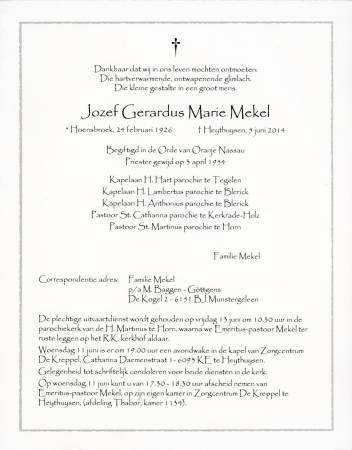 Dankbaar dat wij in ons leven mochten ontmoeten:
Die hartverwarmende, ontwapenende glimlach.
Die kleine gestalte in een groot mens.
Jozef Gerardus Marie Mekel
* Hoensbroek, 24 februari 1926 † Heythuysen, 5 juni 2014
Begiftigd in de Orde van Oranje Nassau
Priester gewijd op 3 april 1954
Kapelaan H. Hart parochie te Tegelen
Kapelaan H. Lambertus parochie te Blerick
Kapelaan H. Anthonius parochie te Blerick
Pastoor St. Catharina parochie te Kerkrade-Holz
Pastoor St. Martinus parochie te Horn
Familie Mekel
Correspondentie adres: Familie Mekel
p/a M. Baggen - Göttgens
De Kogel 2 - 6151 BJ Munstergeleen
De plechtige uitvaartdienst wordt gehouden op vrijdag 13 juni om 10.30 uur in de
parochiekerk van de H. Martinus te Horn, waarna we Emeritus-pastoor Mekel ter
ruste leggen op het R.K. kerkhof aldaar.
Woensdag 11 juni is er om 19.00 uur een avondwake in de kapel van Zorgcentrum
De Kreppel, Catharina Daemenstraat 1- 6093 KE te Heythuysen.
Gelegenheid tot schriftelijk condoleren voor beide diensten in de kerk.
Op woensdag 11 juni kunt u van 17.30 - 18.30 uur afscheid nemen van
Emeritus-pastoor Mekel, op zijn eigen kamer in Zorgcentrum De Kreppel te
Heythuysen, (afdeling Thabor, kamer 1134).